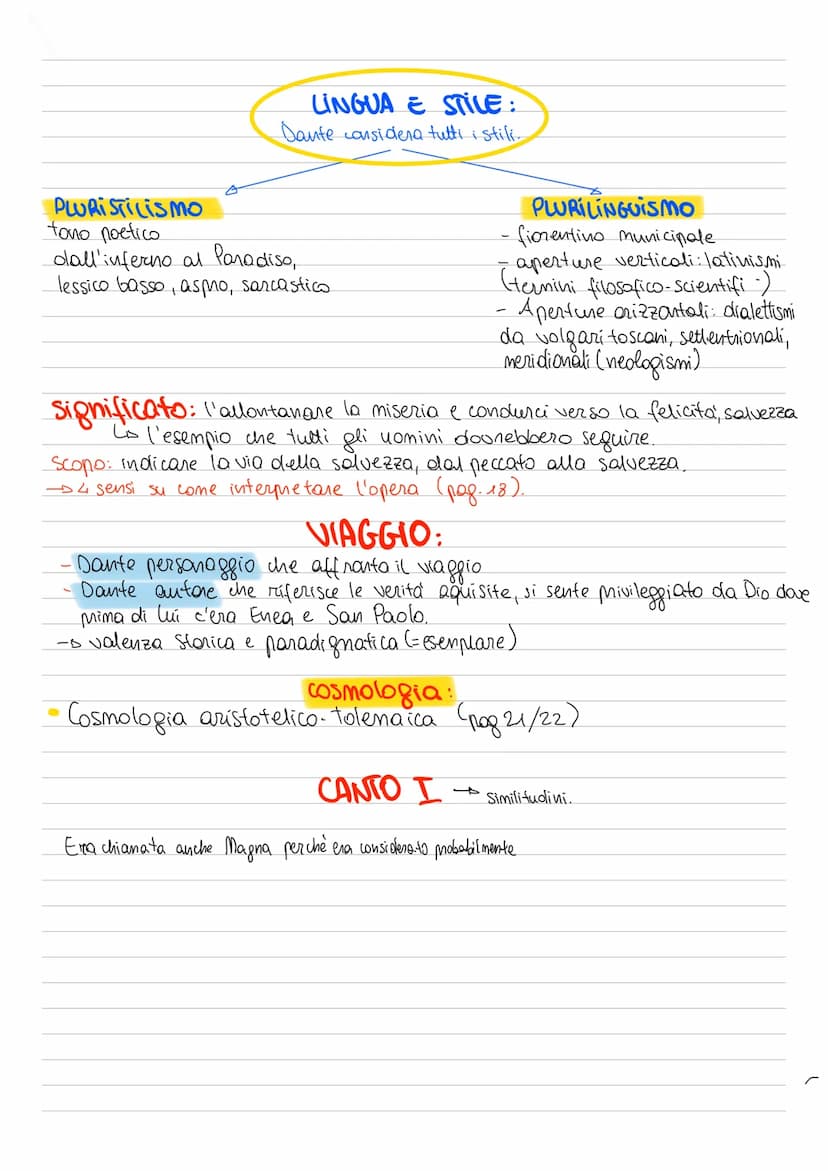 LINGUA E STILE:
Dante considera tutti i stili.
PLURISTILISMO
tono poetico
dall'inferno al Paradiso,
lessico basso, aspro, sarcastico
PLURILINGUISMO
- fiorentino municipale
- aperture verticali: latinismi
(termini filosofico-scientifi -)
- Aperture orizzontali: dialettismi
da volgari toscani, settentrionali,
meridionali (neologismi)
Significato: l'allontanare la miseria e condurci verso la felicità, salvezza
↳ l'esempio che tutti gli uomini dovrebbero seguire.
Scopo: indicare la via della salvezza, dal peccato alla salvezza.
→ 4 sensi su come interpretare l'opera (pag. 18).
VIAGGIO:
- Dante personaggio che affronta il viaggio
- Dante autore che riferisce le verità aquisite, si sente privileggiato da Dio dove
prima di lui c'era Enea e San Paolo.
→ valenza storica e paradigmatica (= esemplare)
COSMOLOGIA:
• Cosmologia aristotelico-tolemaica (pag 21/22)
CANTO I → similitudini.
Era chiamata anche Magna perchè era considerato probabilmente